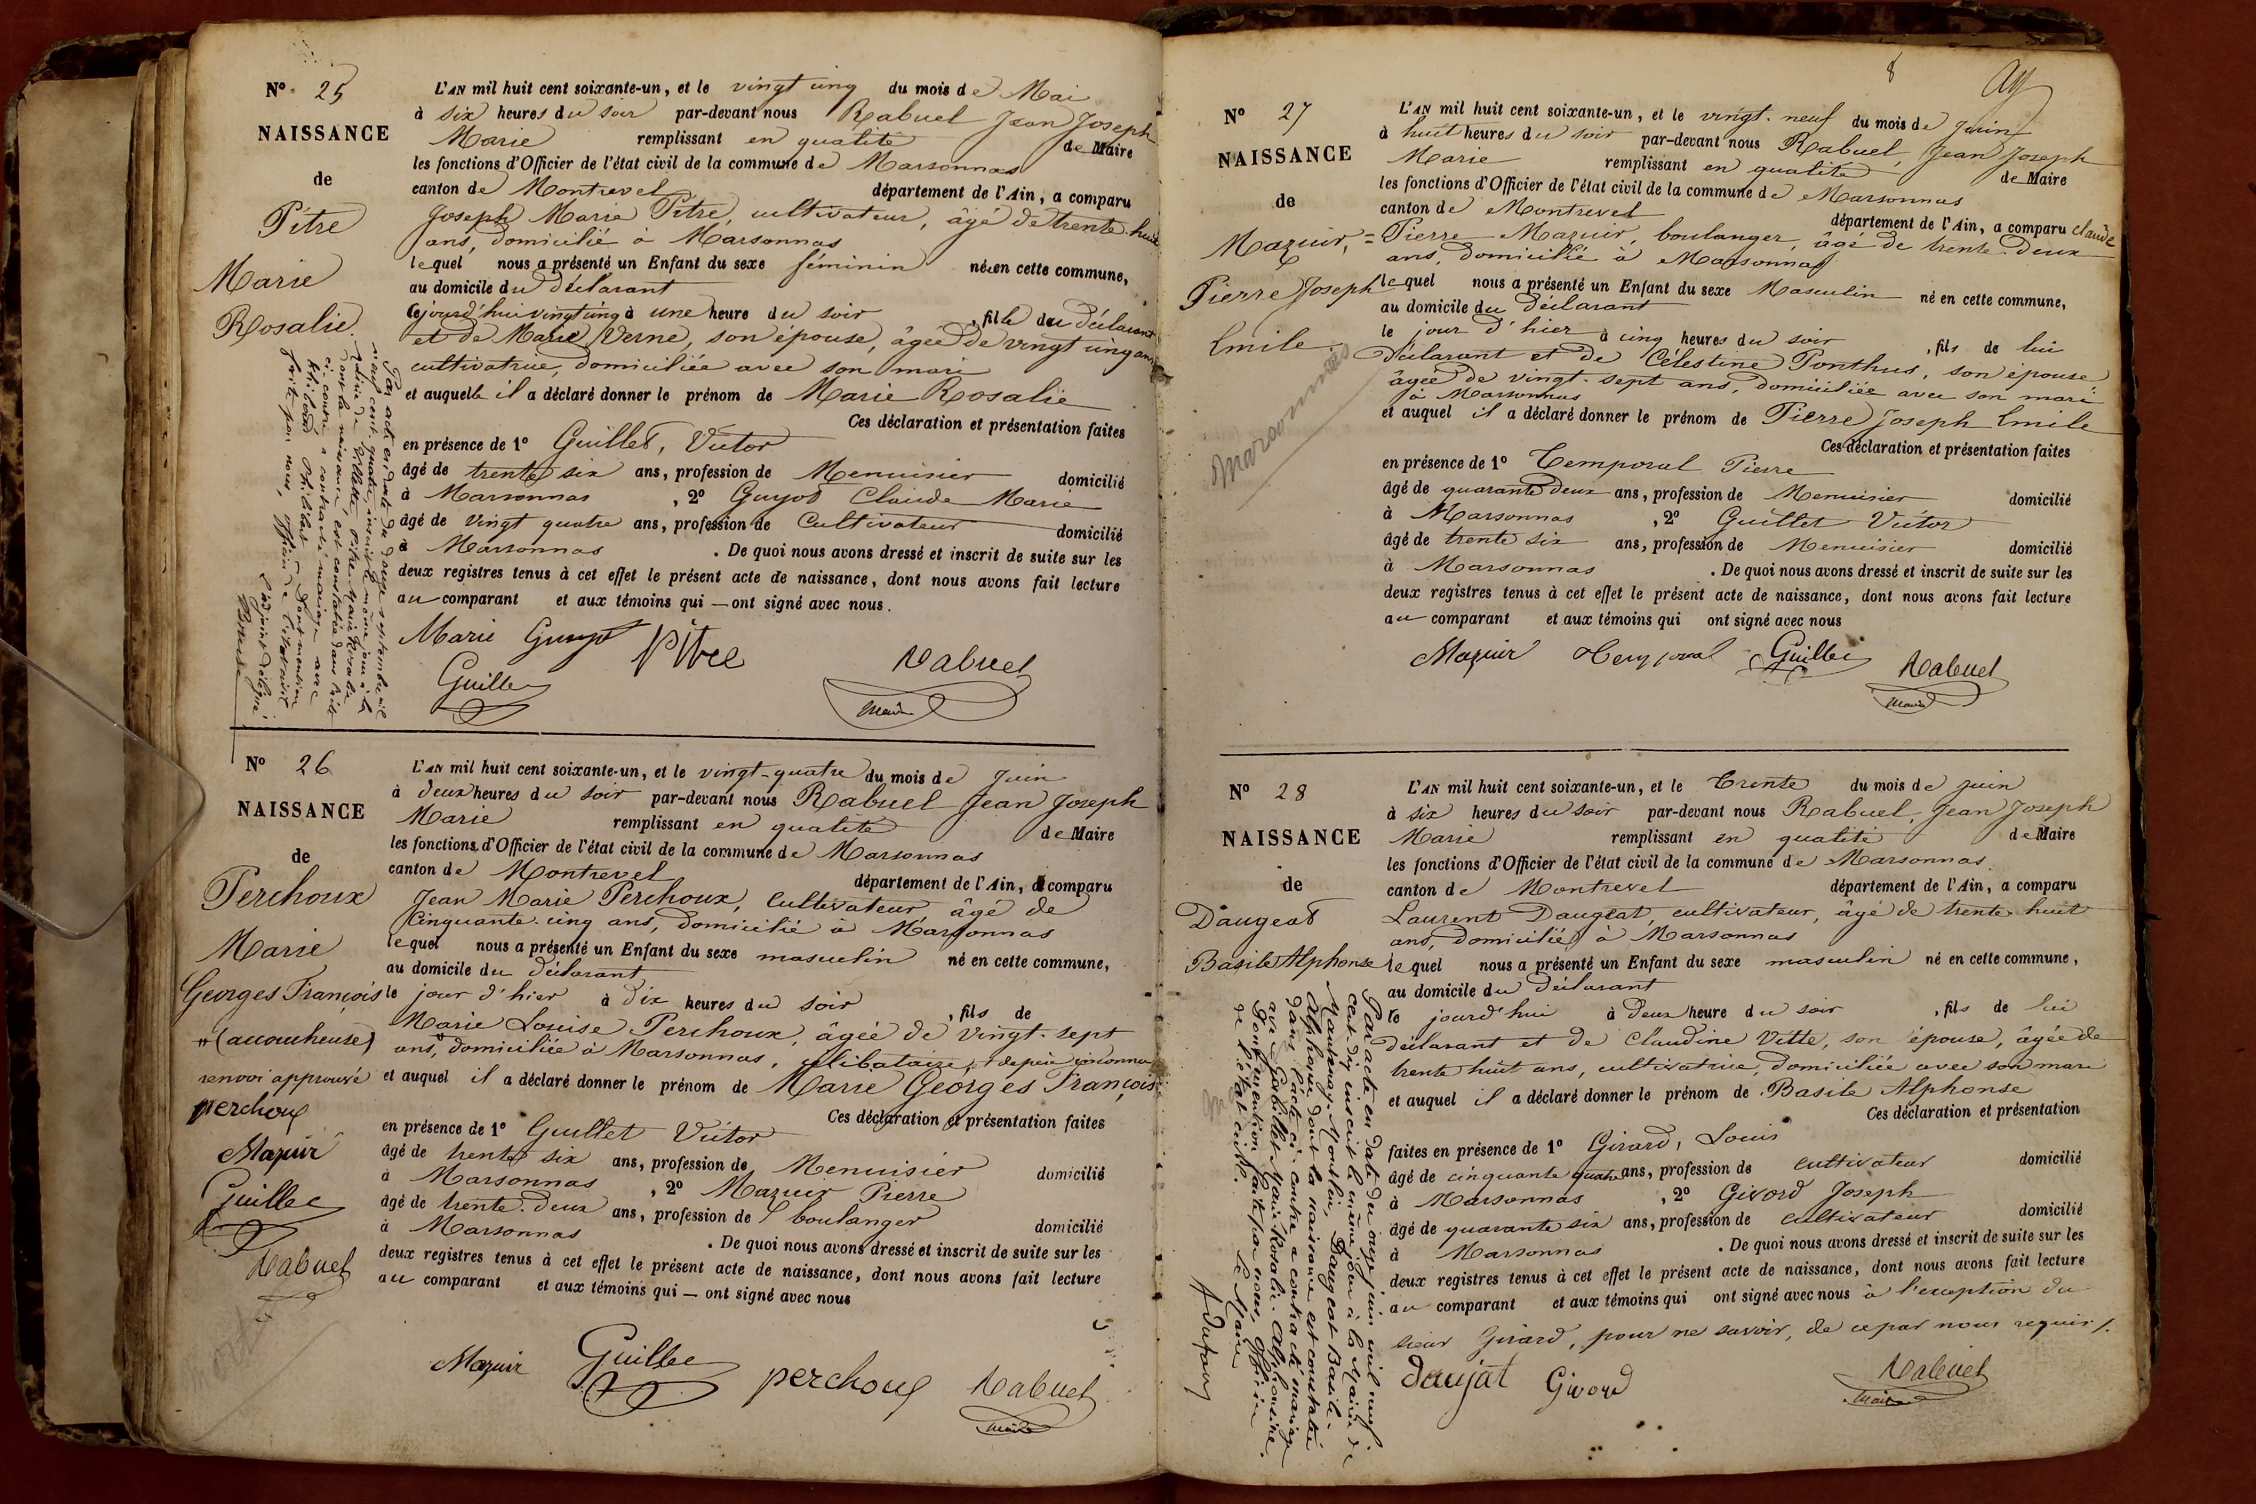 N° 25
NAISSANCE
de
Pitre
Marie
Rosalie.
L'AN mil huit cent soixante-un, et le vingt unq du mois de Mai
à six heures du soir par-devant nous Rabuel Jean Joseph
Marie remplissant en qualité de Maire
les fonctions d'Officier de l'état civil de la commune de Marsonnas
canton de Montrevel département de l'Ain, a comparu
Joseph Marie Pitre, cultivateur, âgé de trente-huit
ans, domicilié à Marsonnas
lequel nous a présenté un Enfant du sexe féminin née en cette commune,
au domicile du déclarant
cejourd'hui vingt unq à une heure du soir, fille du déclarant
et de Marie Verne, son épouse, âgée de vingt cinq ans
cultivatrice, domiciliée avec son mari
et auquelle il a déclaré donner le prénom de Marie Rosalie
Ces déclaration et présentation faites
en présence de 1° Guillet, Victor
âgé de trente six ans, profession de Menuisier domicilié
à Marsonnas, 2° Guyot Claude Marie
âgé de vingt quatre ans, profession de Cultivateur domicilié
à Marsonnas. De quoi nous avons dressé et inscrit de suite sur les
deux registres tenus à cet effet le présent acte de naissance, dont nous avons fait lecture
au comparant et aux témoins qui — ont signé avec nous.
Par acte en date du douze septembre mil
neuf cent quatre, inscrit le même jour à la
Mairie de Villette, Pitre Marie Rosalie
dont la naissance est constatée dans l'acte
ci-contre a contracté mariage avec
Philibert dont mention
faite par nous, officier de l'état civil
L'adjoint délégué,
Marie Guyot Pitre Rabuel
Guillet Maire
N° 26
NAISSANCE
de
Perchoux
Marie
Georges François
(accoucheuse)
renvoi approuvé
perchoux
Mazuir
Guillet
Rabuel
L'AN mil huit cent soixante-un, et le vingt-quatre du mois de Juin
à deux heures du soir par-devant nous Rabuel Jean Joseph
Marie remplissant en qualité de Maire
les fonctions d'Officier de l'état civil de la commune de Marsonnas
canton de Montrevel département de l'Ain, a comparu
Jean Marie Perchoux, Cultivateur âgé de
Cinquante-cinq ans, domicilié à Marsonnas
lequel nous a présenté un Enfant du sexe masculin né en cette commune,
au domicile du déclarant
le jour d'hier à dix heures du soir, fils de
Marie Louise Perchoux, âgée de vingt-sept
ans, domiciliée à Marsonnas, célibataire, de père inconnu
et auquel il a déclaré donner le prénom de Marie Georges François
Ces déclaration et présentation faites
en présence de 1° Guillet Victor
âgé de trente six ans, profession de Menuisier domicilié
à Marsonnas, 2° Mazuir Pierre
âgé de trente-deux ans, profession de boulanger domicilié
à Marsonnas. De quoi nous avons dressé et inscrit de suite sur les
deux registres tenus à cet effet le présent acte de naissance, dont nous avons fait lecture
au comparant et aux témoins qui — ont signé avec nous
Mazuir Guillet perchoux Rabuel
Maire
8
N° 27
NAISSANCE
de
Mazuir,
Pierre Joseph
Emile.
Marsonnas
L'AN mil huit cent soixante-un, et le vingt-neuf du mois de Juin
à huit heures du soir par-devant nous Rabuel, Jean Joseph
Marie remplissant en qualité de Maire
les fonctions d'Officier de l'état civil de la commune de Marsonnas
canton de Montrevel département de l'Ain, a comparu Claude
Pierre Mazuir, boulanger, âgé de trente-deux
ans, domicilié à Marsonnas
lequel nous a présenté un Enfant du sexe Masculin né en cette commune,
au domicile du déclarant
le jour d'hier à cinq heures du soir, fils de lui
Déclarant et de Célestine Ponthus, son épouse,
âgée de vingt-sept ans, domiciliée avec son mari
à Marsonnas
et auquel il a déclaré donner le prénom de Pierre Joseph Emile
Ces déclaration et présentation faites
en présence de 1° Temporal Pierre
âgé de quarante deux ans, profession de Menuisier domicilié
à Marsonnas, 2° Guillet Victor
âgé de trente six ans, profession de Menuisier domicilié
à Marsonnas. De quoi nous avons dressé et inscrit de suite sur les
deux registres tenus à cet effet le présent acte de naissance, dont nous avons fait lecture
au comparant et aux témoins qui ont signé avec nous
Mazuir Temporal Guillet Rabuel
Maire
N° 28
NAISSANCE
de
Daugeat
Basile Alphonse
L'AN mil huit cent soixante-un, et le Trente du mois de juin
à six heures du soir par-devant nous Rabuel, Jean Joseph
Marie remplissant en qualité de Maire
les fonctions d'Officier de l'état civil de la commune de Marsonnas
canton de Montrevel département de l'Ain, a comparu
Laurent Daugeat, cultivateur, âgé de trente-huit
ans, domicilié à Marsonnas
lequel nous a présenté un Enfant du sexe masculin né en cette commune,
au domicile du déclarant
le jourd'hui à Deux heure du soir, fils de lui
déclarant et de Claudine Vitte, son épouse, âgée de
trente huit ans, cultivatrice, domiciliée avec son mari
et auquel il a déclaré donner le prénom de Basile Alphonse
Ces déclaration et présentation
faites en présence de 1° Girard, Louis
âgé de cinquante quatre ans, profession de cultivateur domicilié
à Marsonnas, 2° Givord Joseph
âgé de quarante six ans, profession de cultivateur domicilié
à Marsonnas. De quoi nous avons dressé et inscrit de suite sur les
deux registres tenus à cet effet le présent acte de naissance, dont nous avons fait lecture
au comparant et aux témoins qui ont signé avec nous à l'exception du
sieur Girard, pour ne savoir, de ce par nous requis.
Par acte en date du onze juin mil neuf
cent dix inscrit le même jour à la Mairie de
Mantenay-Montlin, Daugeat Basile-
Alphonse dont la naissance est constatée
dans l'acte ci-contre a contracté mariage
avec Gabillet Marie-Rosalie-Alphonsine.
Dont mention faite par nous, Officier
de l'état civil. Le Maire
daujat Givord Rabuel
Maire